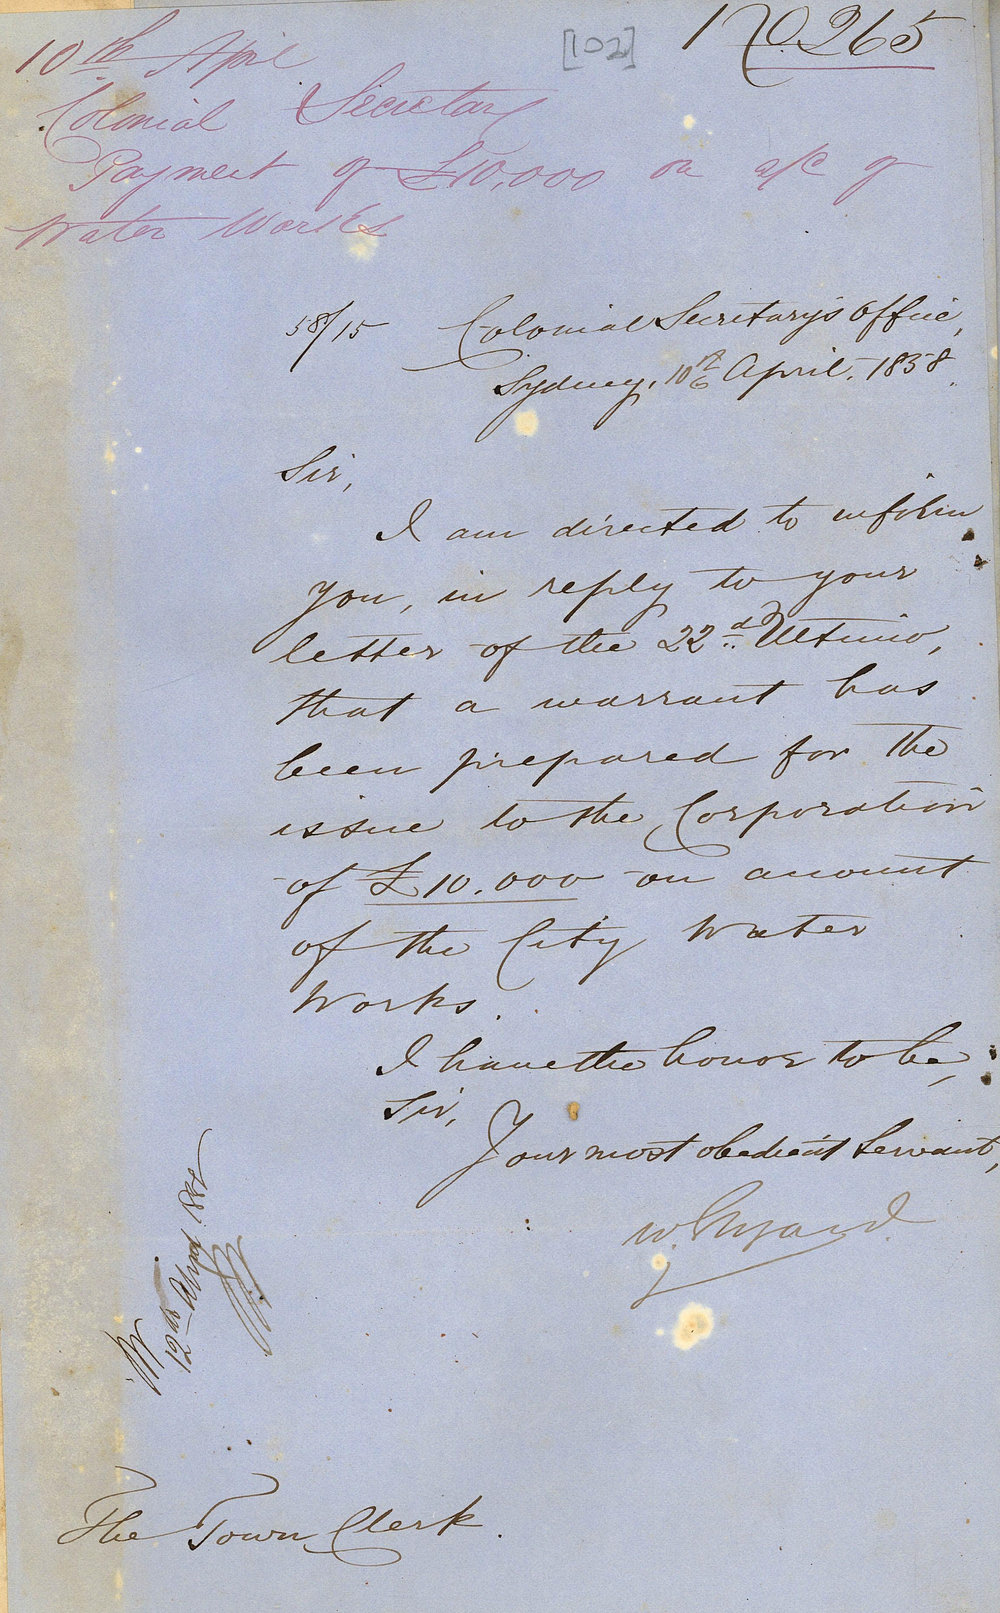 No. 265
[102]
10th April
Colonial Secretary
Payment of £10,000 on a/c of
Water Works
58/15 Colonial Secretary's Office,
Sydney, 10th April. 1858.
Sir,
I am directed to inform
you, in reply to your
letter of the 22d. Ultimo,
that a warrant has
been prepared for the
issue to the Corporation
of £10.000 on account
of the City Water
Works.
I have the honor to be,
Sir,
Your most obedient Servant,
W. Elyard.
12th April
The Town Clerk.